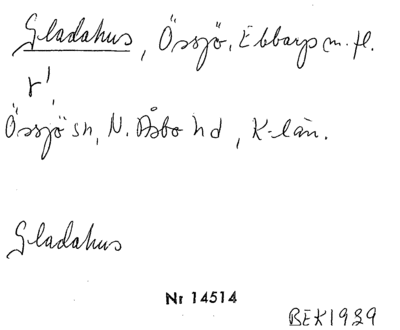 Gladahus, Össjö, Ebbarps m. fl.
Össjö sn, N. Åsbo hd, K-län.
Gladahus
Nr 14514
BEK1939